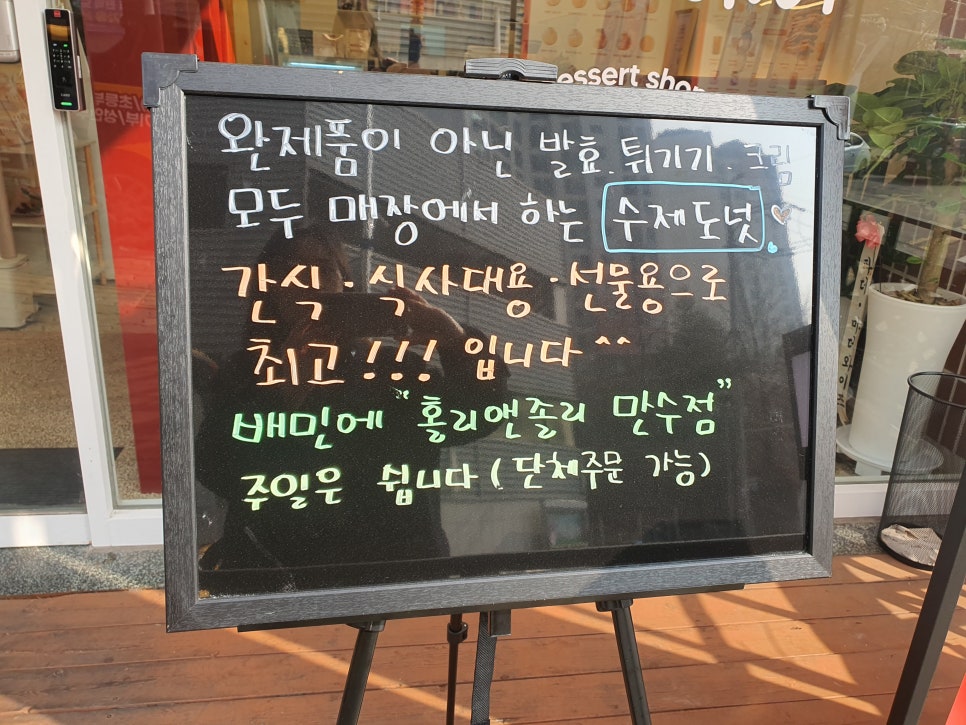 essert shop
완제품이 아닌 발효. 튀기기. 크림
모두 매장에서 하는 수제도넛
간식 · 식사대용 · 선물용으로
최고!!! 입니다^^
배민에 "홀리앤졸리 만수점"
주일은 쉽니다 (단체주문 가능)